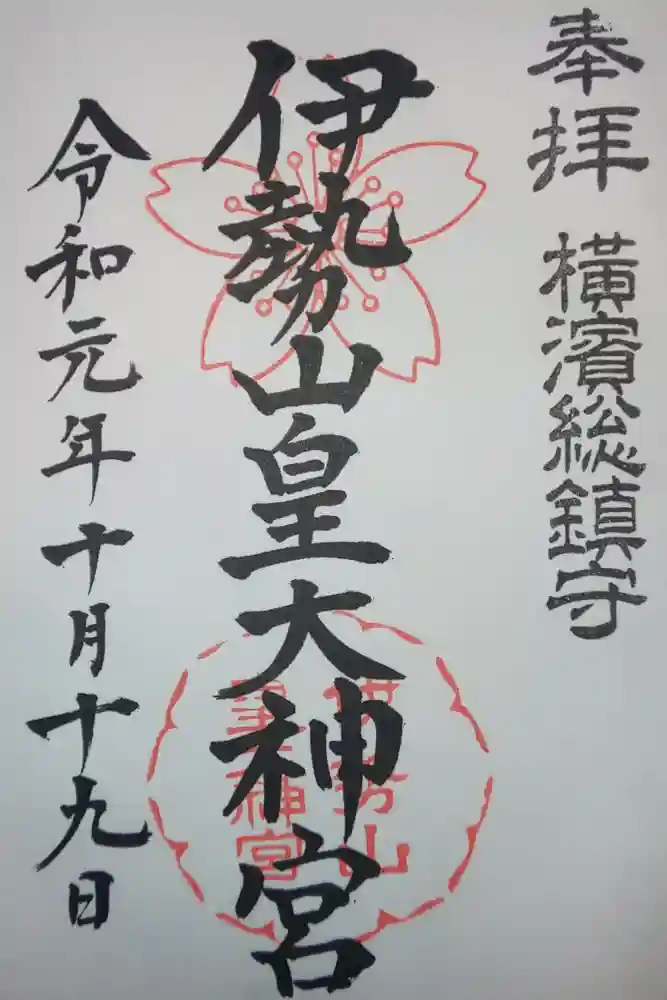 奉拝
横濱総鎮守
伊勢山皇大神宮
伊勢山
皇大神宮
令和元年十月十九日